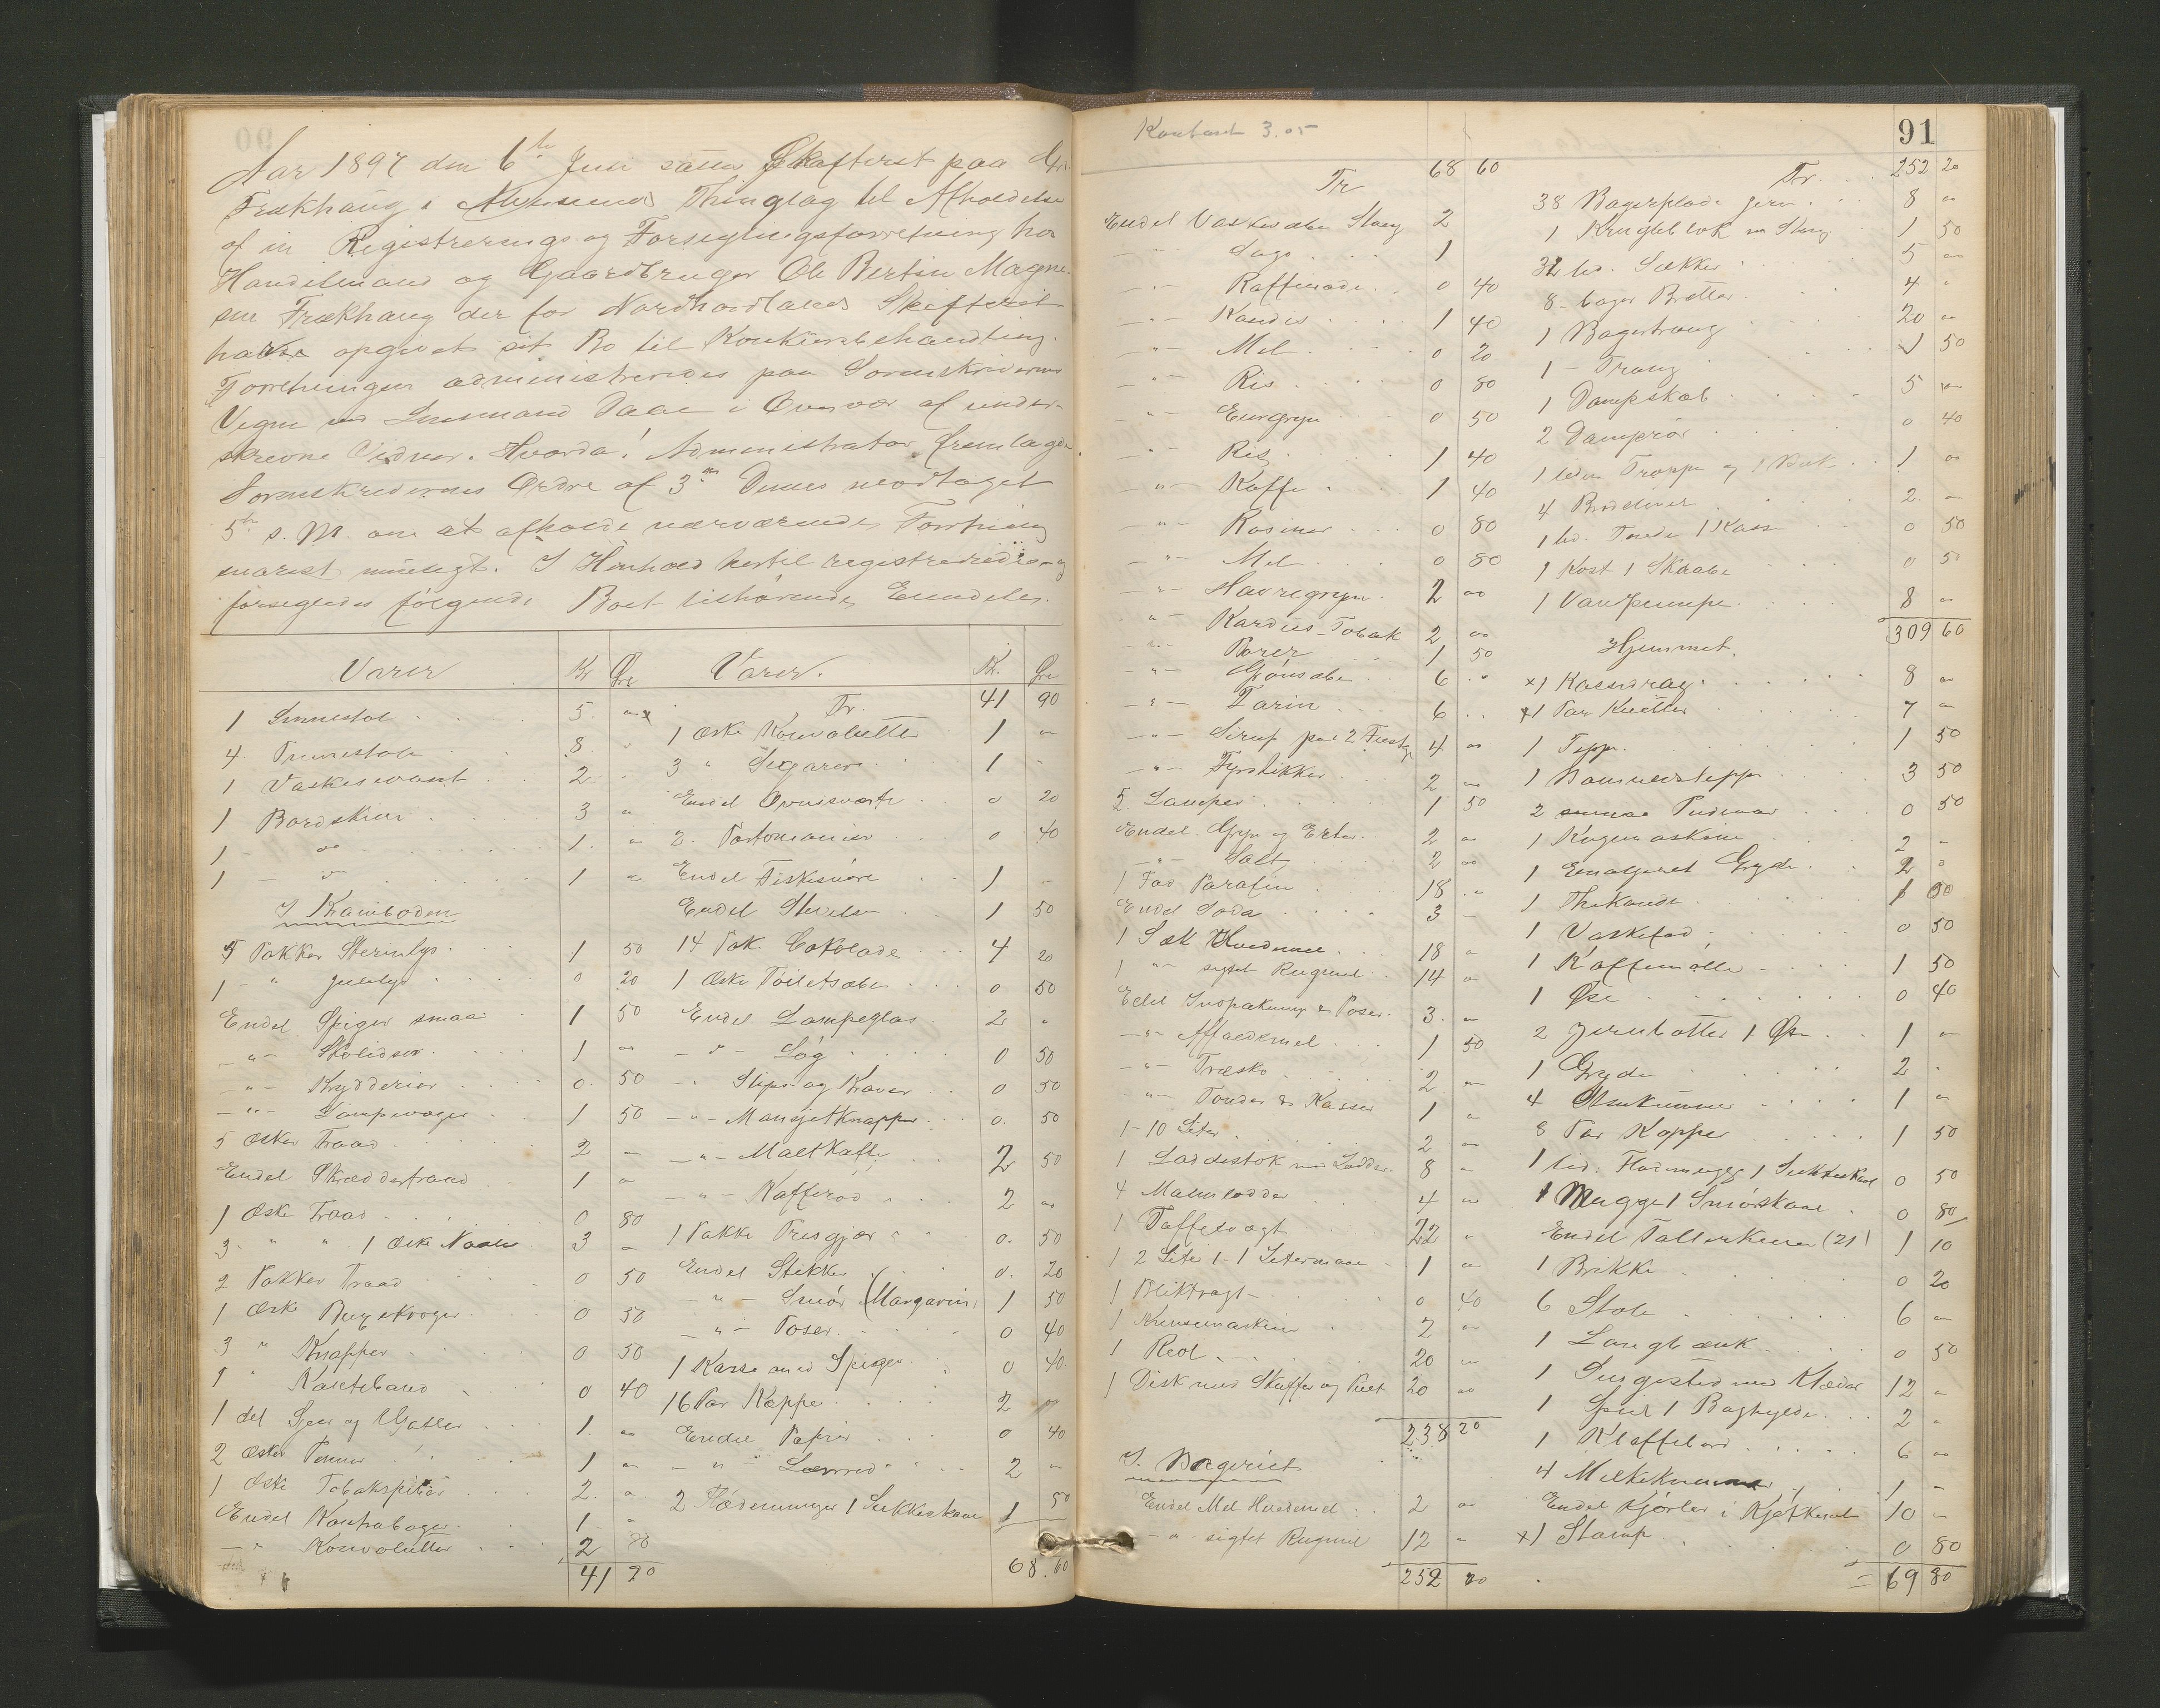 Aar 1897 den 6te Juni sattes Skifteret paa Gr.
Trækhaug i Thinglag til Afholdelse
af en Registrerings og Forseglingsforretning hos
Handelsmand og Gaardbruger Ole Bertin Magne-
sen Trækhaug der for Nordhordlands Skifteret
havde opgivet sit Bo til Konkursbehandling.
Forretningen administreredes paa Sorenskriverens
Vegne ved Lensmand Daae i Overvær af under-
skrevne Vidner. Hvorda! Administrator fremlagde
Sorenskriverens Ordre af 3die Dennes modtaget
5te s. M. om at afholde nærværende Forretning
snarest muligt. I Henhold hertil registreredes og
forsegledes følgende Boet tilhørende Eiendele.
Varer Kr Øre
1 5 "
4 8 "
1 2 "
1 3 "
1 - do 1 "
1 - " 1 "
I Kramboden
5 Pakker Sterinlys 1 50
1 - " Julelys 0 20
Endel Spiger smaa 1 50
- " - 1 "
- " - Krydderier 0 50
- " - Lampevæger 1 50
5 Æsker Traad 2 "
Endel Skræddertraad 1 "
1 Æske Traad 0 80
3 " " 1 Æske Naale 3 "
2 Pakker Traad 0 50
1 Æske 0 50
3 " Knapper 0 50
1 " Kantebaand 0 40
1 del 1 "
2 Æsker Penne 1 "
1 Æske Tobakspiber 2 "
Endel Kontrabøger 1 "
- " Konvolutter 2 80
41 90
Varer. Kr. Øre
Tr. 41 90
1 Æske Konvolutter 1 "
3 " Sigarer 1 -
Endel Ovnsværte 0 20
2 Portomonæer 0 40
Endel Fiskesnøre 1 -
Endel Stivelse 1 50
14 Pak. Cokolade 4 20
1 Æske Toiletsæbe 0 50
Endel Lampeglas 2 "
- " - Løg 0 50
- " Slips og Kraver 0 50
- " - Mansjetknapper 0 50
- " - Maltkaffe 2 50
- " - Kafferod 2 "
1 Pakke Tresgjær 0 50
Endel Stikker 0 20
- " - Smør (Margarin) 1 50
- " - Poser 0 40
1 Kasse med Spiger 0 40
16 Par Koppe 2 "
Endel Papir 0 40
- " - Lærred 2 "
2 Flødemugger 1 Sukkerskaal 1 50
68 60
Kontant 3.05
91
Tr 68 60
Endel Vaskesæbe Stang 2
Sago 1
- " - Raffinade 0 40
- " - Kandis 1 40
- " - Mel 0 20
- " - Ris 0 80
" - 0 50
- " - Ris 1 40
- " - Kaffe 1 40
- " - Rosiner 0 80
- " - Mel 0 80
- " - Havregryn 2 "
" - Kardus-Tobak 2 "
- " - 1 50
- " - Grønsæbe 6 "
- " - Farin 6 "
- " - Sirup paa 2 4 "
- " - Fyrstikker 2 "
5 Lamper 1 50
Endel Gryn og Erter 2 "
- " - Salt 2 "
1 Fad Parafin 18 "
Endel Soda 3 -
1 Sæk Hvedemel 18 "
1 " - sigtet Rugmel 14 "
Edel & Poser 3 "
- " - Affaldsmel 1 50
- " - Træsko 2 "
- " - Tønder & Kasser 1 "
1 - 10 Liter 2 "
1 Loddestok med Lodder 8 "
4 Malmlodder 4 "
1 Taffelvægt 22 "
1 2 Liter 1 - 1 Litermaal 1 "
1 Bliktragt 0 40
1 2 "
1 Reol 20 "
1 Disk med Skuffer og Pult 20 "
238 20
I Bageriet
Endel Mel Hvedemel 2 "
- " - sigtet Rugmel 12 "
252 20
Tr. 252 20
38 Bagerplade jern 8 "
1 m Stang 1 50
32 Sække 5 "
8 - bager Bretter 4 "
1 Bagertraug 20 "
1 - Traug 1 50
1 Dampskab 5 "
2 Damprør 0 40
1 liden Trappe og 1 1 "
4 2 -
1 lid. Tønde 1 Kasse 0 50
1 Kost 1 Skrabe 0 50
1 Vanpumpe 8 "
309 60
Hjemmet.
x1 8 "
x1 Par 7 "
1 Teppe 1 50
1 3 50
2 0 50
1 2 -
1 Emalgeret Gryde 2 "
1 Thekande 1 50
1 Vaskefad 0 50
1 Kaffemølle 1 50
1 Øse 0 40
2 1 Øse 1 "
1 Gryde 2 "
4 1 "
8 Par Kopper 1 50
1 lid. Flødemugge 1 Sukkerskaal 0 50
1 Mugge 1 Smørskaal 0 80
Endel Tallerkener (21) 1 10
1 Brikke 0 20
6 Stole 6 "
1 Langbænk 0 50
1 Sengested med Klæder 12 "
1 Speil 1 Boghylde 2 "
1 Klaffebord 6 "
4 1 -
Endel Kjørler i 10 "
x1 Stamp 0 80
= 69 80